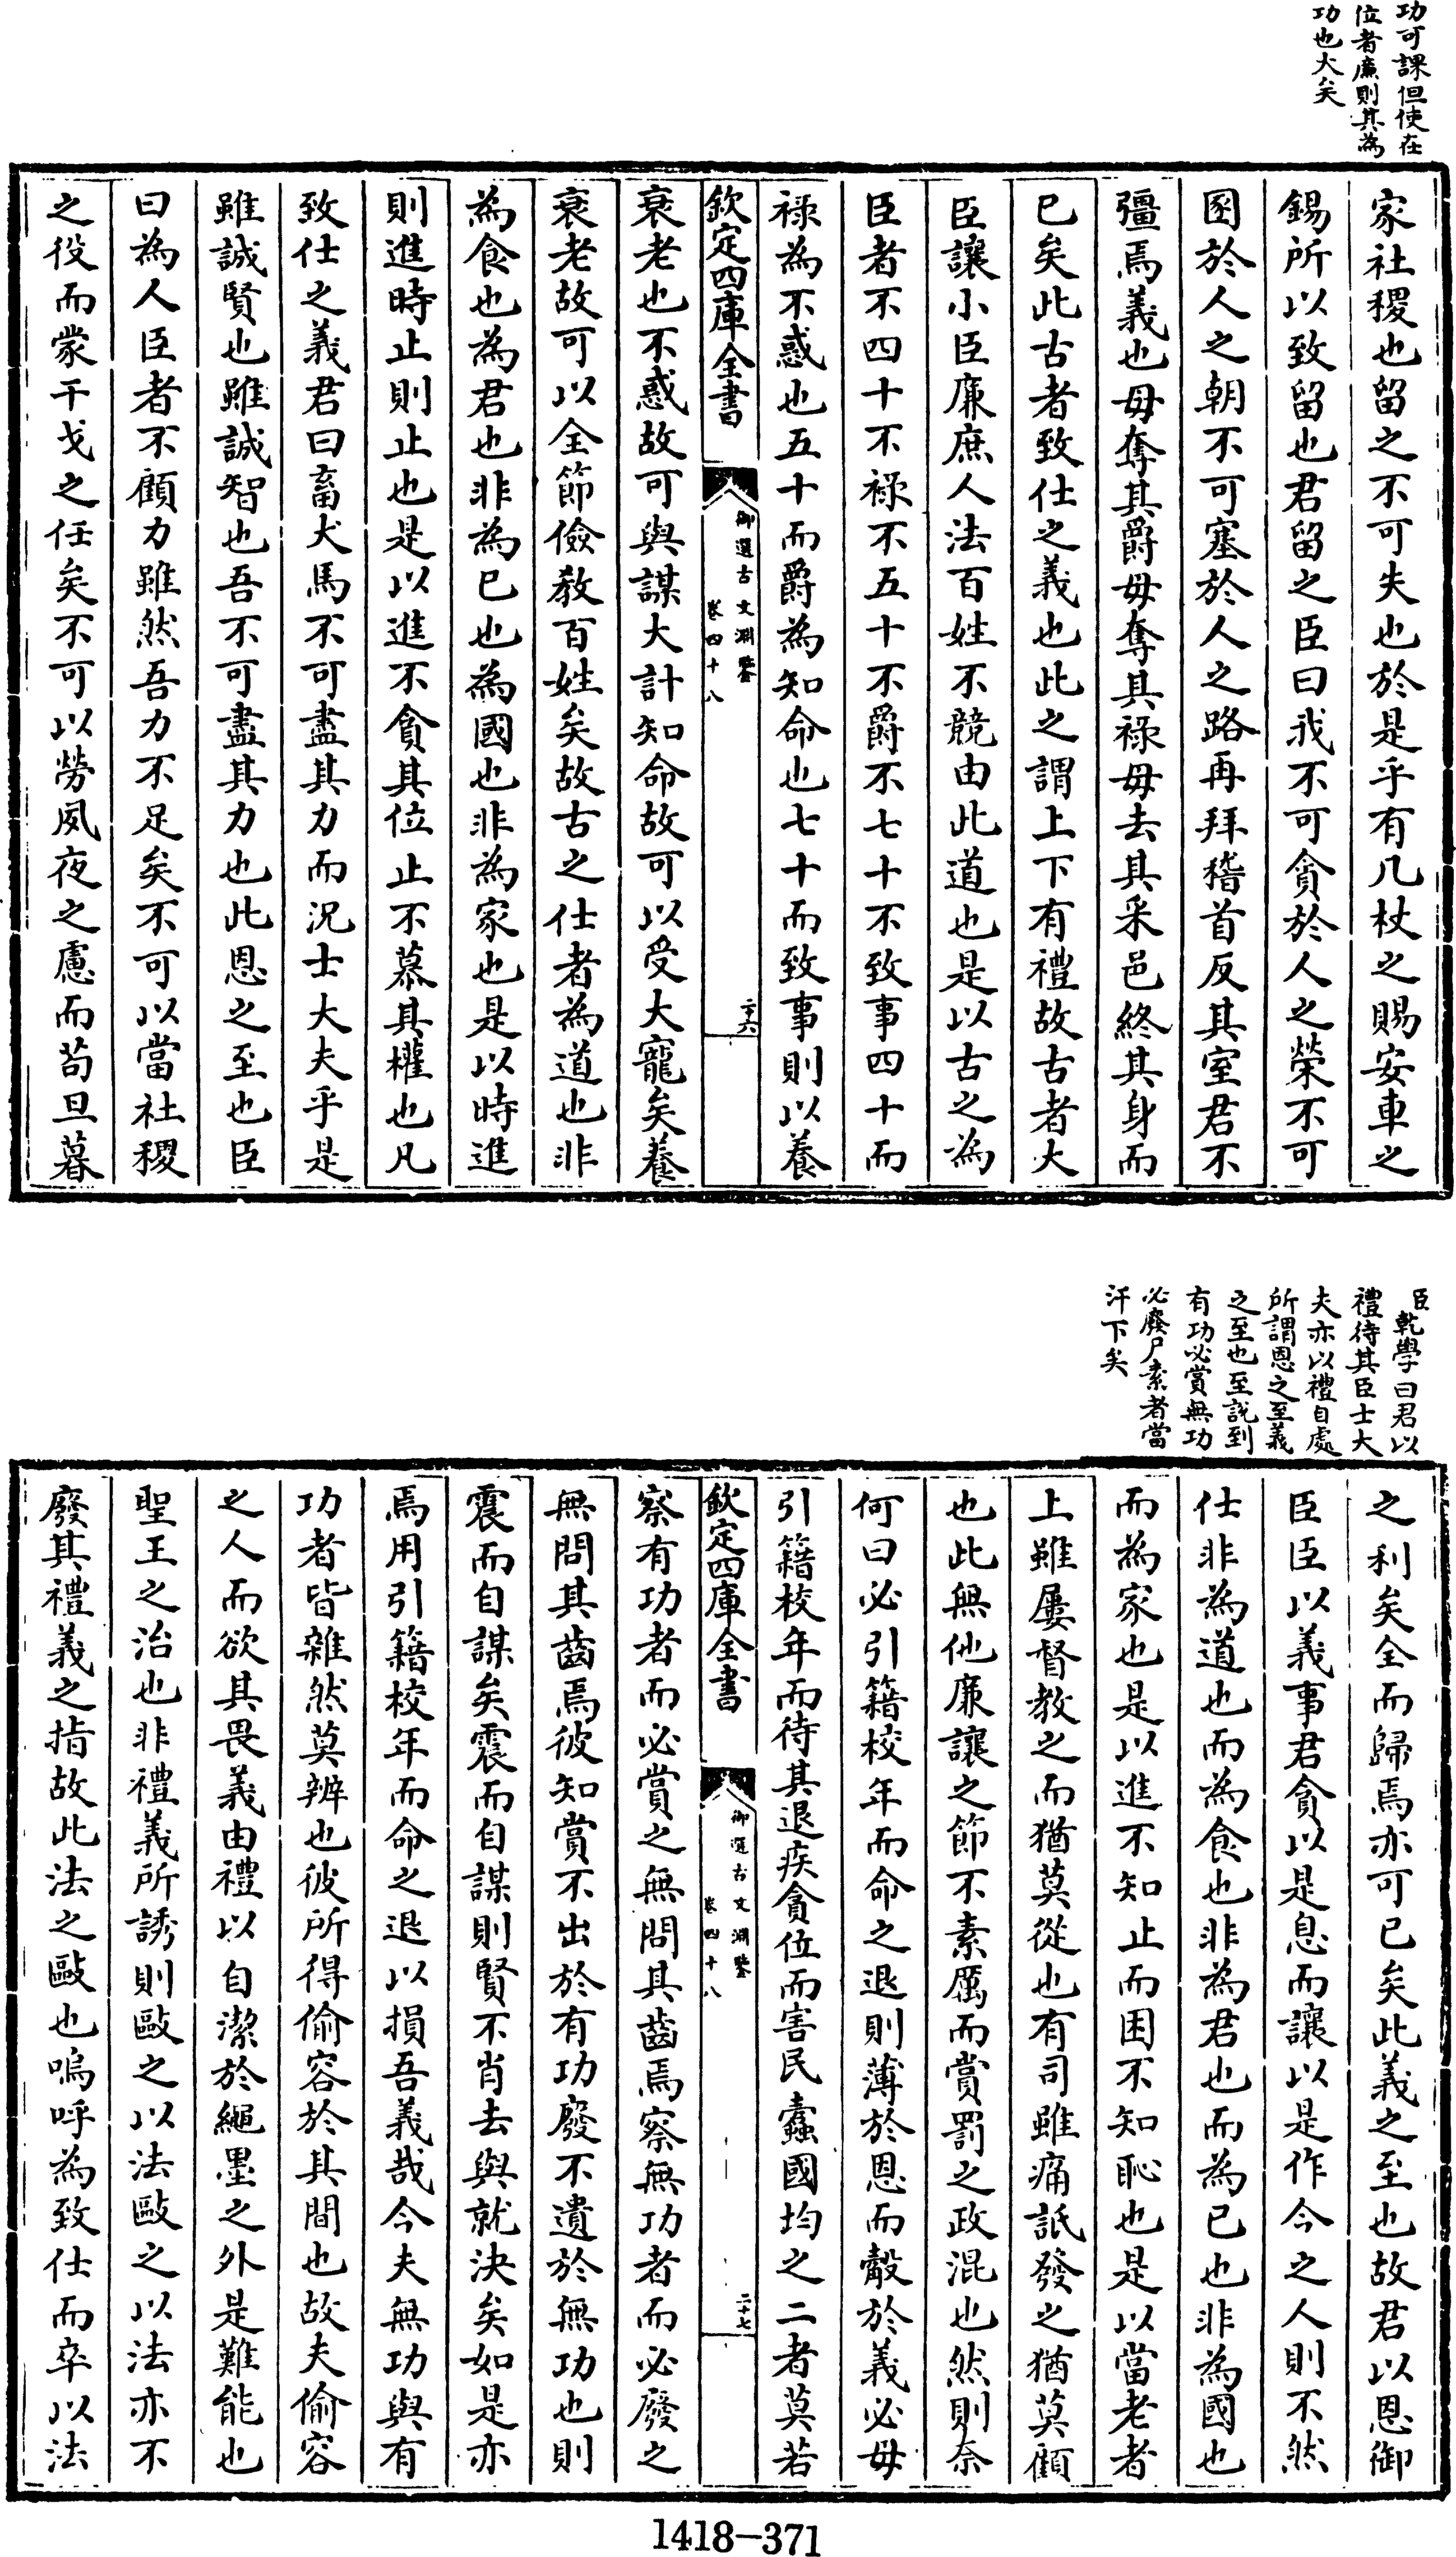 功可課但使在
位者廉則其為
功也大矣
家社稷也留之不可失也於是乎有几杖之賜安車之
錫所以致留也君留之臣曰我不可貪於人之榮不可
圂於人之朝不可塞於人之路再拜稽首反其室君不
彊焉義也毋奪其爵毋奪其祿毋去其采邑終其身而
已矣此古者致仕之義也此之謂上下有禮故古者大
臣讓小臣廉庶人法百姓不競由此道也是以古之為
臣者不四十不祿不五十不爵不七十不致事四十而
祿為不惑也五十而爵為知命也七十而致事則以養
欽定四庫全書
御選古文淵鑒
卷四十八
二十六
衰老也不惑故可與謀大計知命故可以受大寵矣養
衰老故可以全節儉教百姓矣故古之仕者為道也非
為食也為君也非為已也為國也非為家也是以時進
則進時止則止也是以進不貪其位止不慕其權也凡
致仕之義君曰畜犬馬不可盡其力而況士大夫乎是
雖誠賢也雖誠智也吾不可盡其力也此恩之至也臣
曰為人臣者不顧力雖然吾力不足矣不可以當社稷
之役而蒙干戈之任矣不可以勞夙夜之慮而苟旦暮
臣乾學曰君以
禮待其臣士大
夫亦以禮自處
所謂恩之至義
之至也至説到
有功必賞無功
必廢尸素者當
汗下矣
之利矣全而歸焉亦可已矣此義之至也故君以恩御
臣臣以義事君貪以是息而讓以是作今之人則不然
仕非為道也而為食也非為君也而為已也非為國也
而為家也是以進不知止而困不知恥也是以當老者
上雖屢督教之而猶莫從也有司雖痛詆發之猶莫顧
也此無他廉讓之節不素厲而賞罰之政混也然則奈
何曰必引籍校年而命之退則薄於恩而觳於義必毋
引籍校年而待其退疾貪位而害民蠹國均之二者莫若
欽定四庫全書
御選古文淵鑒
卷四十八
二十七
察有功者而必賞之無問其齒焉察無功者而必廢之
無問其齒焉彼知賞不出於有功廢不遺於無功也則
震而自謀矣震而自謀則賢不肖去與就決矣如是亦
焉用引籍校年而命之退以損吾義哉今夫無功與有
功者皆雜然莫辨也彼所得偷容於其間也故夫偷容
之人而欲其畏義由禮以自潔於繩墨之外是難能也
聖王之治也非禮義所誘則敺之以法敺之以法亦不
廢其禮義之指故此法之敺也嗚呼為致仕而卒以法
1418-371